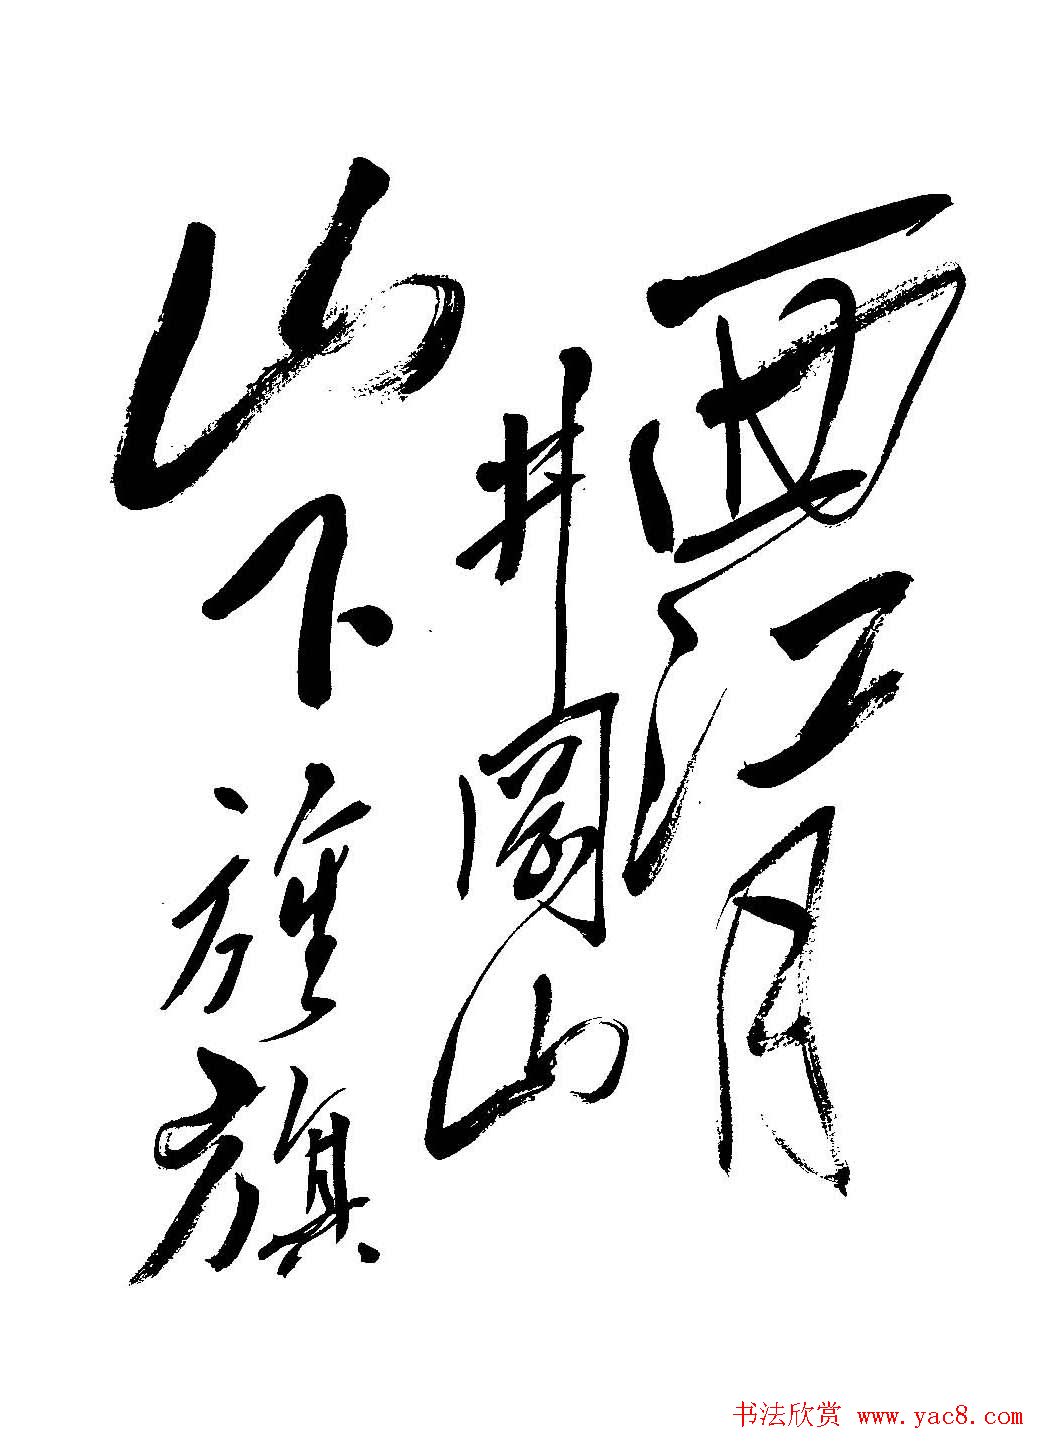 西江月
井岡山
山下旌旗
书法欣赏 www.yac8.com